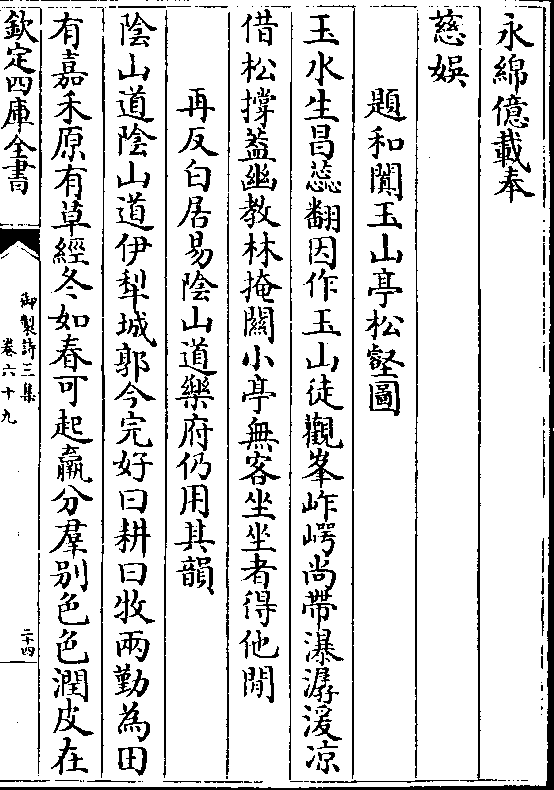 永綿億載奉
慈娛
題和闐玉山亭松壑圖
玉水生昌蕊翻因作玉山徒觀峯岞崿尚帶瀑潺湲凉
借松撐葢幽教林掩關小亭無客坐坐者得他閒
再反白居易陰山道樂府仍用其韻
陰山道陰山道伊犁城郭今完好曰耕曰牧兩勤為田
有嘉禾原有草經冬如春可起羸分羣别色色潤皮在
欽定四庫全書
御製詩三集
卷六十九
二十四